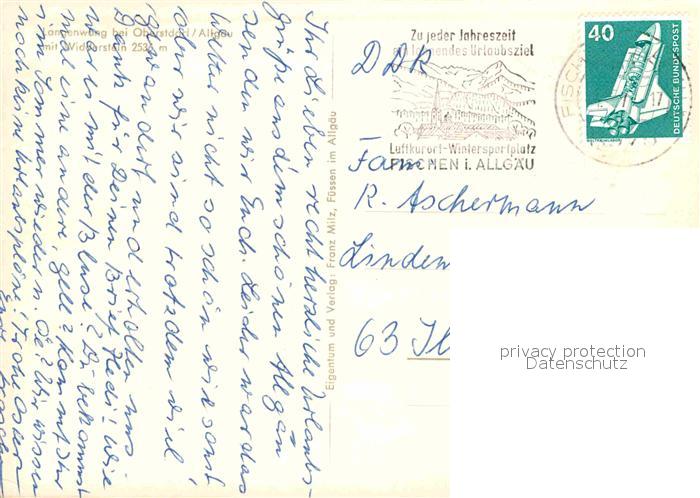 Langenwang bei Oberstdorf/Allgäu
mit Widderstein 2536 m
Ihr Lieben, recht herzliche Urlaubs-
grüße aus dem schönen Allgäu
senden wir Euch. Leider war das
Wetter nicht so schön wie sonst
aber wir sind trotzdem viel
gewandert und erholten uns
Dank für Deinen Brief Hedi! Wie
war es mit der Bluse? Du bekommst
eine andere, gell? Kommt Ihr
im Sommer wieder n. Oe? Wir wissen
noch keine Urlaubspläne! Frohe Ostern
Eure
Eigentum und Verlag: Franz Milz, Füssen im Allgäu
Zu jeder Jahreszeit
ein lohnendes Urlaubsziel
Luftkurort-Wintersportplatz
FISCHEN i. ALLGÄU
FISCH
17
40
DEUTSCHE BUNDESPOST
WELTRAUMLABOR
DDR
Fam.
R. Aschermann
Linden
63 Il
privacy protection
Datenschutz